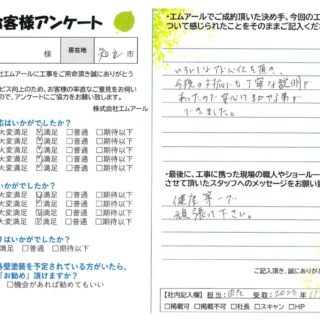 お客様アンケート
様 居在地 知立 市
社エムアールに工事をご用命頂き誠にありがとう
ビス向上のため、お客様の率直なご意見をお伺い
ので、アンケートにご協力をお願い致します。
株式会社エムアール
応はいかがでしたか?
大変満足 ☑満足 □普通 □期待以下
大変満足 ☑満足 □普通 □期待以下
大変満足 ☑満足 □普通 □期待以下
大変満足 ☑満足 □普通 □期待以下
いかがでしたか?
大変満足 ☑満足 □普通 □期待以下
大変満足 ☑満足 □普通 □期待以下
大変満足 ☑満足 □普通 □期待以下
大変満足 ☑満足 □普通 □期待以下
りはいかがでしたか?
満足 □普通 □期待以下
外壁塗装を予定されている方がいたら、
「お勧め」頂けますか?
□機会があれば勧めてもいい
・エムアールでご成約頂いた決め手、今回の工
ついて感じられたことをそのままご記入くださ
いろいろなアドバイスを頂き、
今後の支払いも丁寧な説明が
あったので安心してまかせる事が
できました。
・最後に、工事に携った現場の職人やショールー
させて頂いたスタッフへのメッセージをお願い致
健康第一で
頑張って下さい。
ご記入頂き、誠にありがと
【社内記入欄】担当: 受取:2023 11
□掲載可 □掲載不可 □社長 □スキャン □HP